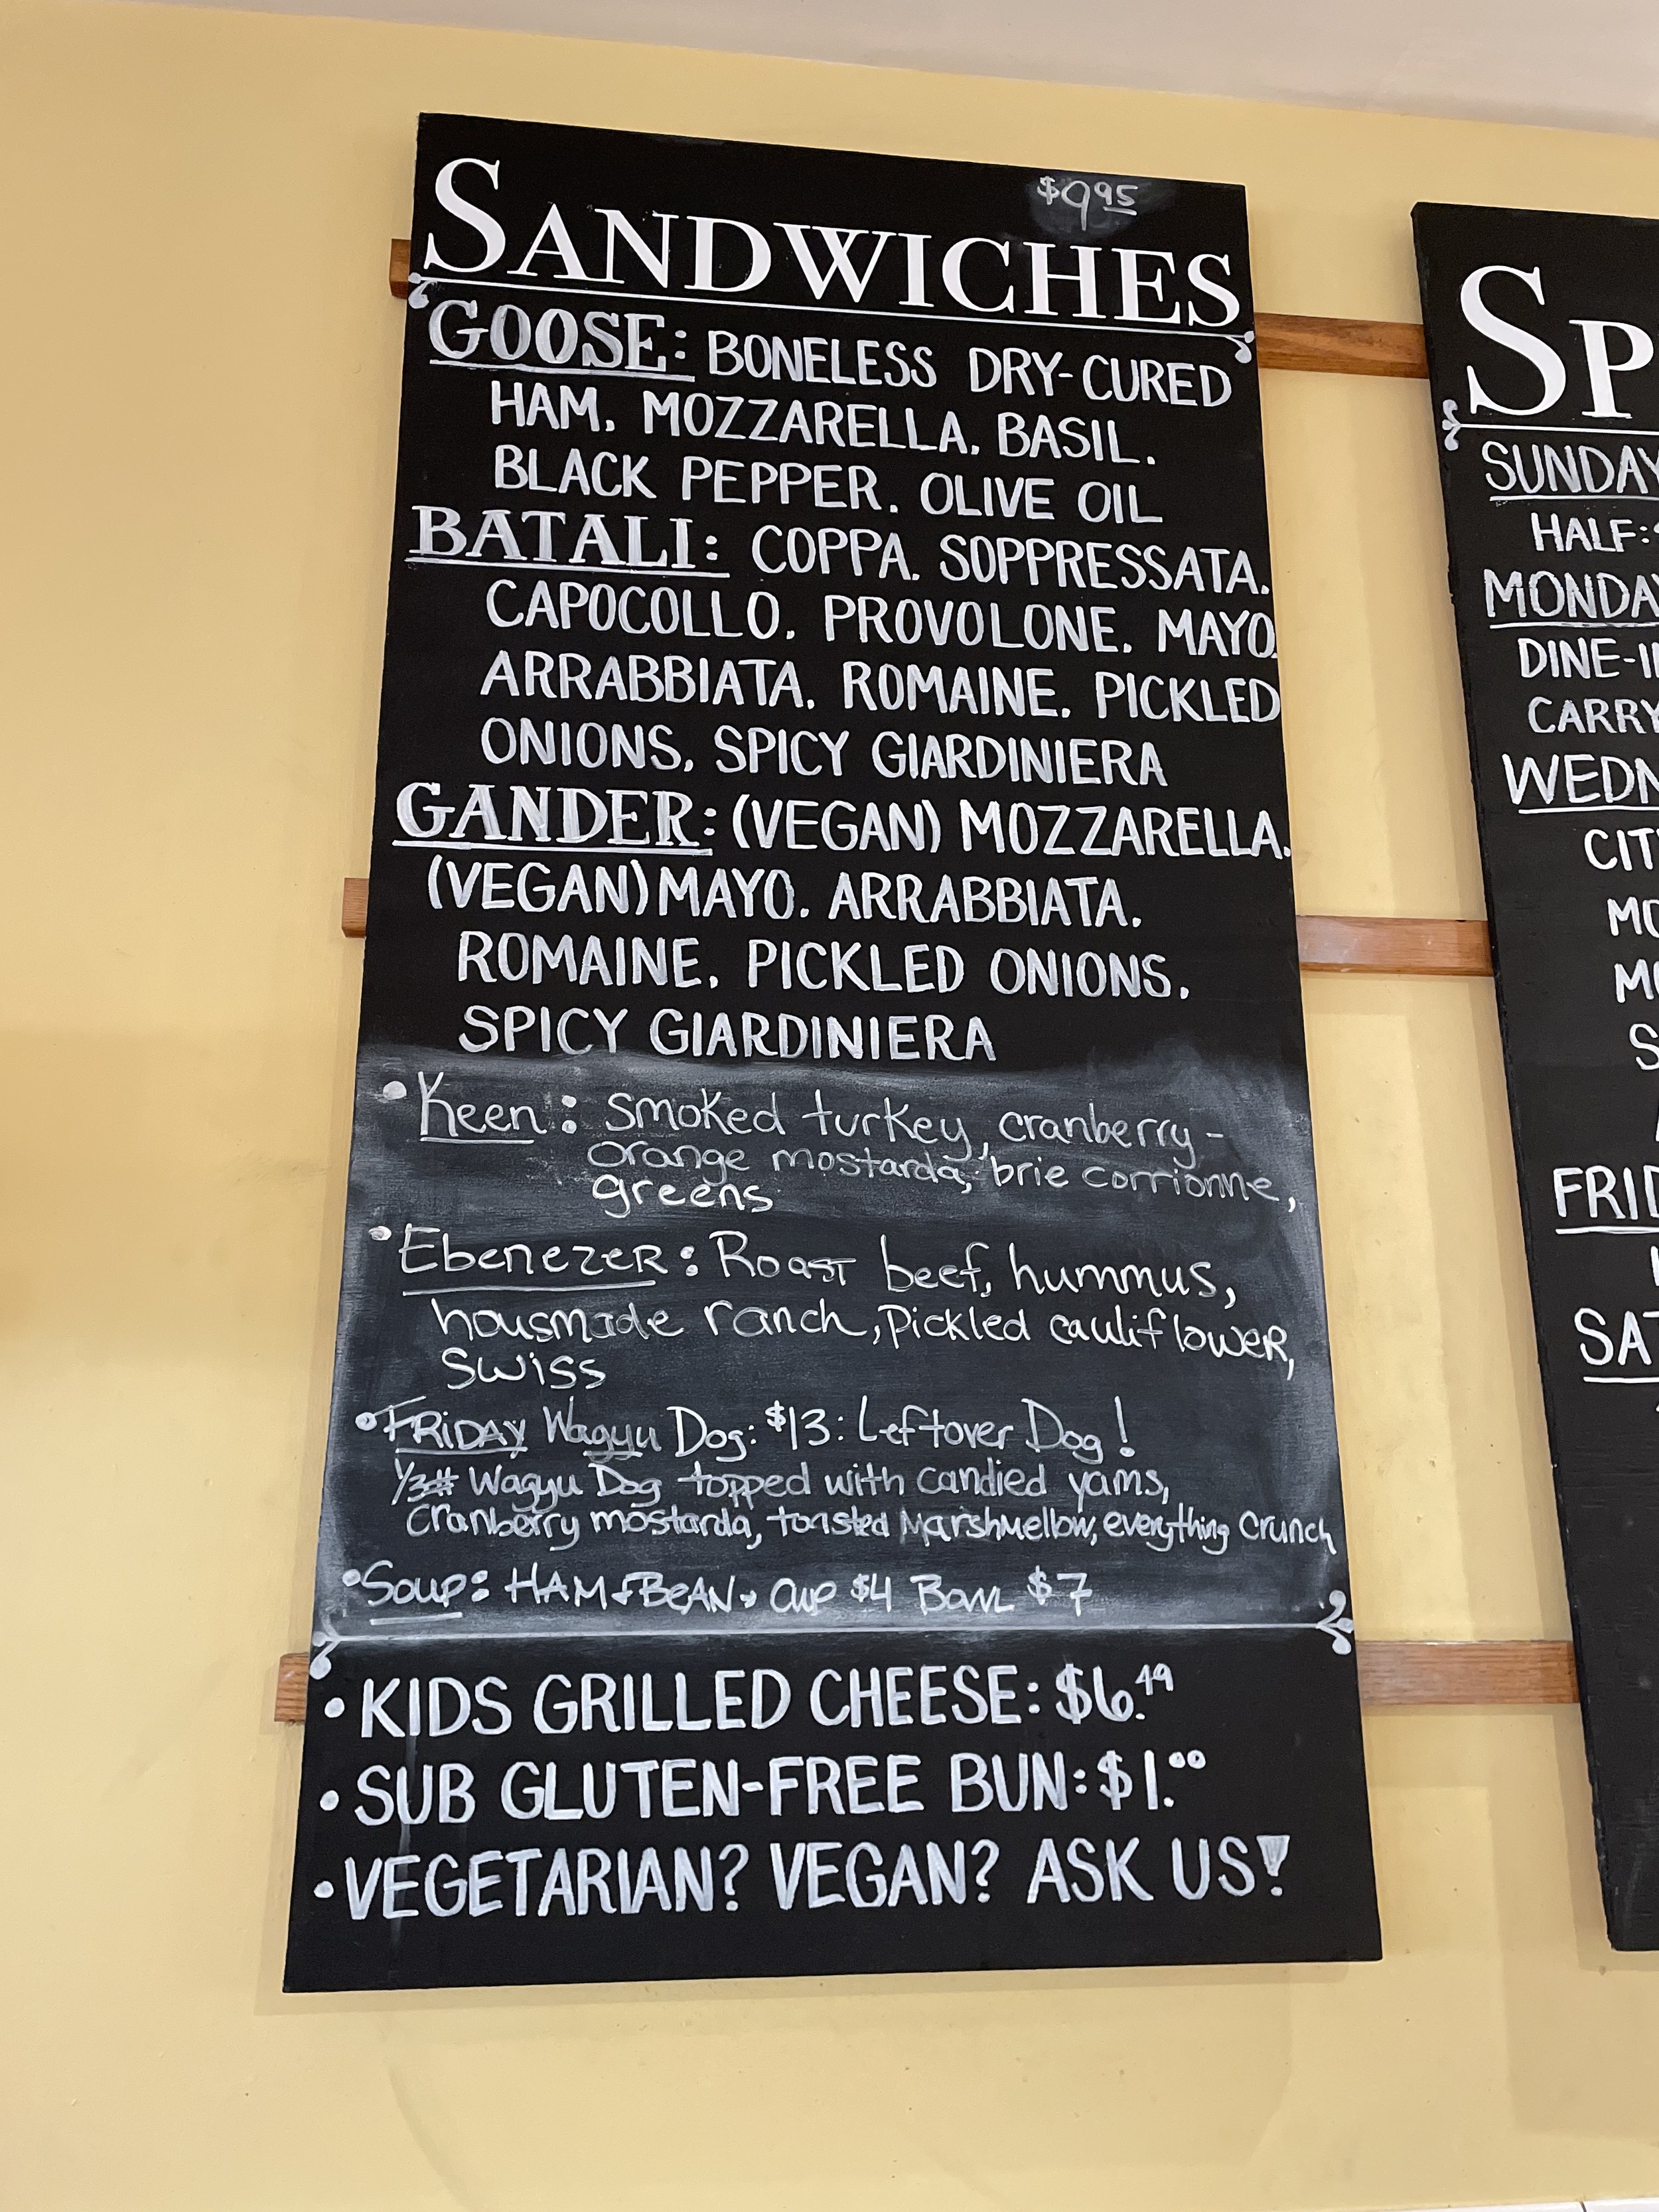 $9.95
SANDWICHES
GOOSE: BONELESS DRY-CURED
HAM. MOZZARELLA. BASIL.
BLACK PEPPER. OLIVE OIL
BATALI: COPPA. SOPPRESSATA.
CAPOCOLLO. PROVOLONE. MAYO.
ARRABBIATA. ROMAINE. PICKLED
ONIONS. SPICY GIARDINIERA
GANDER: (VEGAN) MOZZARELLA.
(VEGAN) MAYO. ARRABBIATA.
ROMAINE. PICKLED ONIONS.
SPICY GIARDINIERA
• Keen: smoked turkey, cranberry-
orange mostarda, brie corrionne,
greens
• EbenezeR: Roast beef, hummus,
housmade ranch, Pickled cauliflower,
Swiss
• FRiDAY Wagyu Dog: $13: Leftover Dog!
1/3# Wagyu Dog topped with candied yams,
Cranberry mostarda, toasted Marshmellow, everything Crunch
• Soup: HAM + BeAN. Cup $4 Bowl $7
• KIDS GRILLED CHEESE: $6.49
• SUB GLUTEN-FREE BUN: $1.00
• VEGETARIAN? VEGAN? ASK US!
SP
SUNDAY
HALF:
MONDA
DINE-I
CARRY
WEDN
CIT
MO
MO
S
FRID
SAT